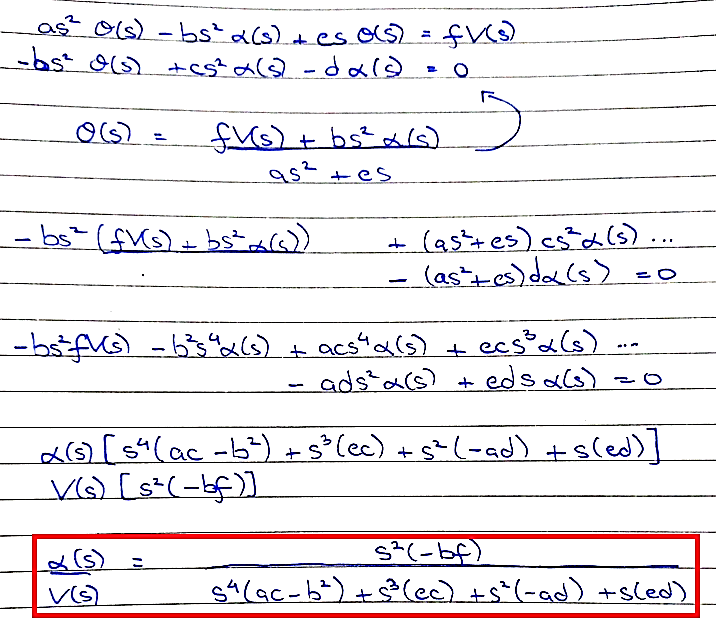 as² θ(s) - bs² α(s) + es θ(s) = fV(s)
-bs² θ(s) + cs² α(s) - dα(s) = 0
θ(s) = fV(s) + bs² α(s)
as² + es
-bs² (fV(s) + bs² α(s)) + (as²+es) cs² α(s) ...
- (as²+es) dα(s) = 0
-bs²fV(s) - b²s⁴α(s) + acs⁴α(s) + ecs³α(s) ...
- ads²α(s) + eds α(s) = 0
α(s) [s⁴(ac - b²) + s³(ec) + s²(-ad) + s(ed)]
V(s) [s²(-bf)]
α(s) = s²(-bf)
V(s) s⁴(ac-b²) + s³(ec) + s²(-ad) + s(ed)